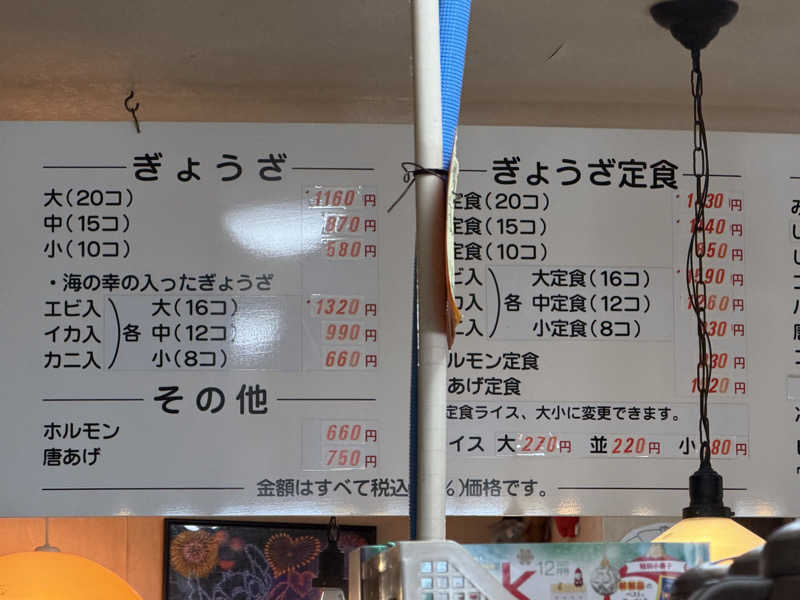 ぎょうざ
大(20コ) 1160円
中(15コ) 870円
小(10コ) 580円
・海の幸の入ったぎょうざ
エビ入
イカ入
カニ入
各
大(16コ) 1320円
中(12コ) 990円
小(8コ) 660円
その他
ホルモン 660円
唐あげ 750円
ぎょうざ定食
定食(20コ) 円
定食(15コ) 円
定食(10コ) 円
入
入
入
各
大定食(16コ) 円
中定食(12コ) 円
小定食(8コ) 円
ルモン定食 円
あげ定食 円
定食ライス、大小に変更できます。
イス 大 270円 並 220円 小 80円
金額はすべて税込 %)価格です。
12月